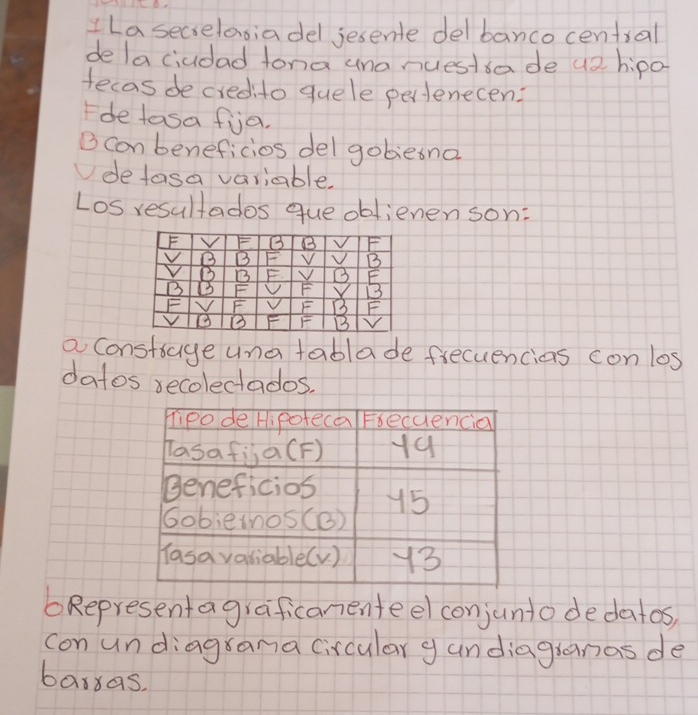 1 La secretaria del jerente del banco central
de la ciudad toma una muestra de 42 hipo
tecas de credito que le pertenecen:
F de tasa fija.
B con beneficios del gobierno
V de tasa variable.
Los resultados que obtienen son:
F V F B B V F
V B B F V V B
V B B F V B F
B B F V F V B
F V F V F B F
V B B F F B V
a construye una tabla de frecuencias con los
datos recolectados.
Tipo de Hipoteca Frecuencia
Tasa fija (F) 14
Beneficios
Gobiernos (B) 15
Tasa variable (V) 13
b Representa graficamente el conjunto de datos,
con un diagrama circular y un diagramas de
barras.